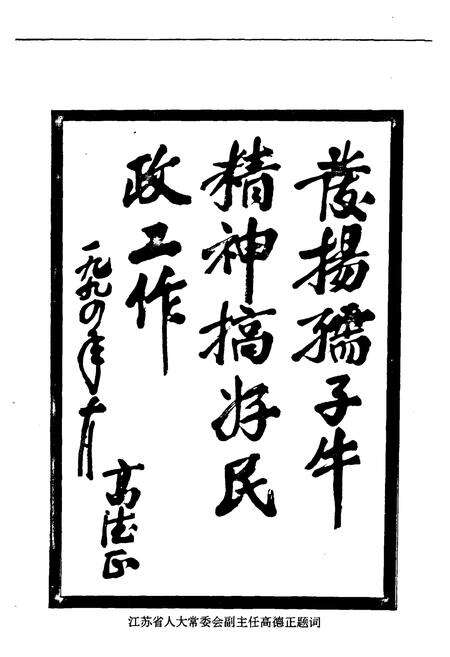 發揚孺子牛
精神搞好民
政工作
一九九四年十月
高德正
江苏省人大常委会副主任高德正题词